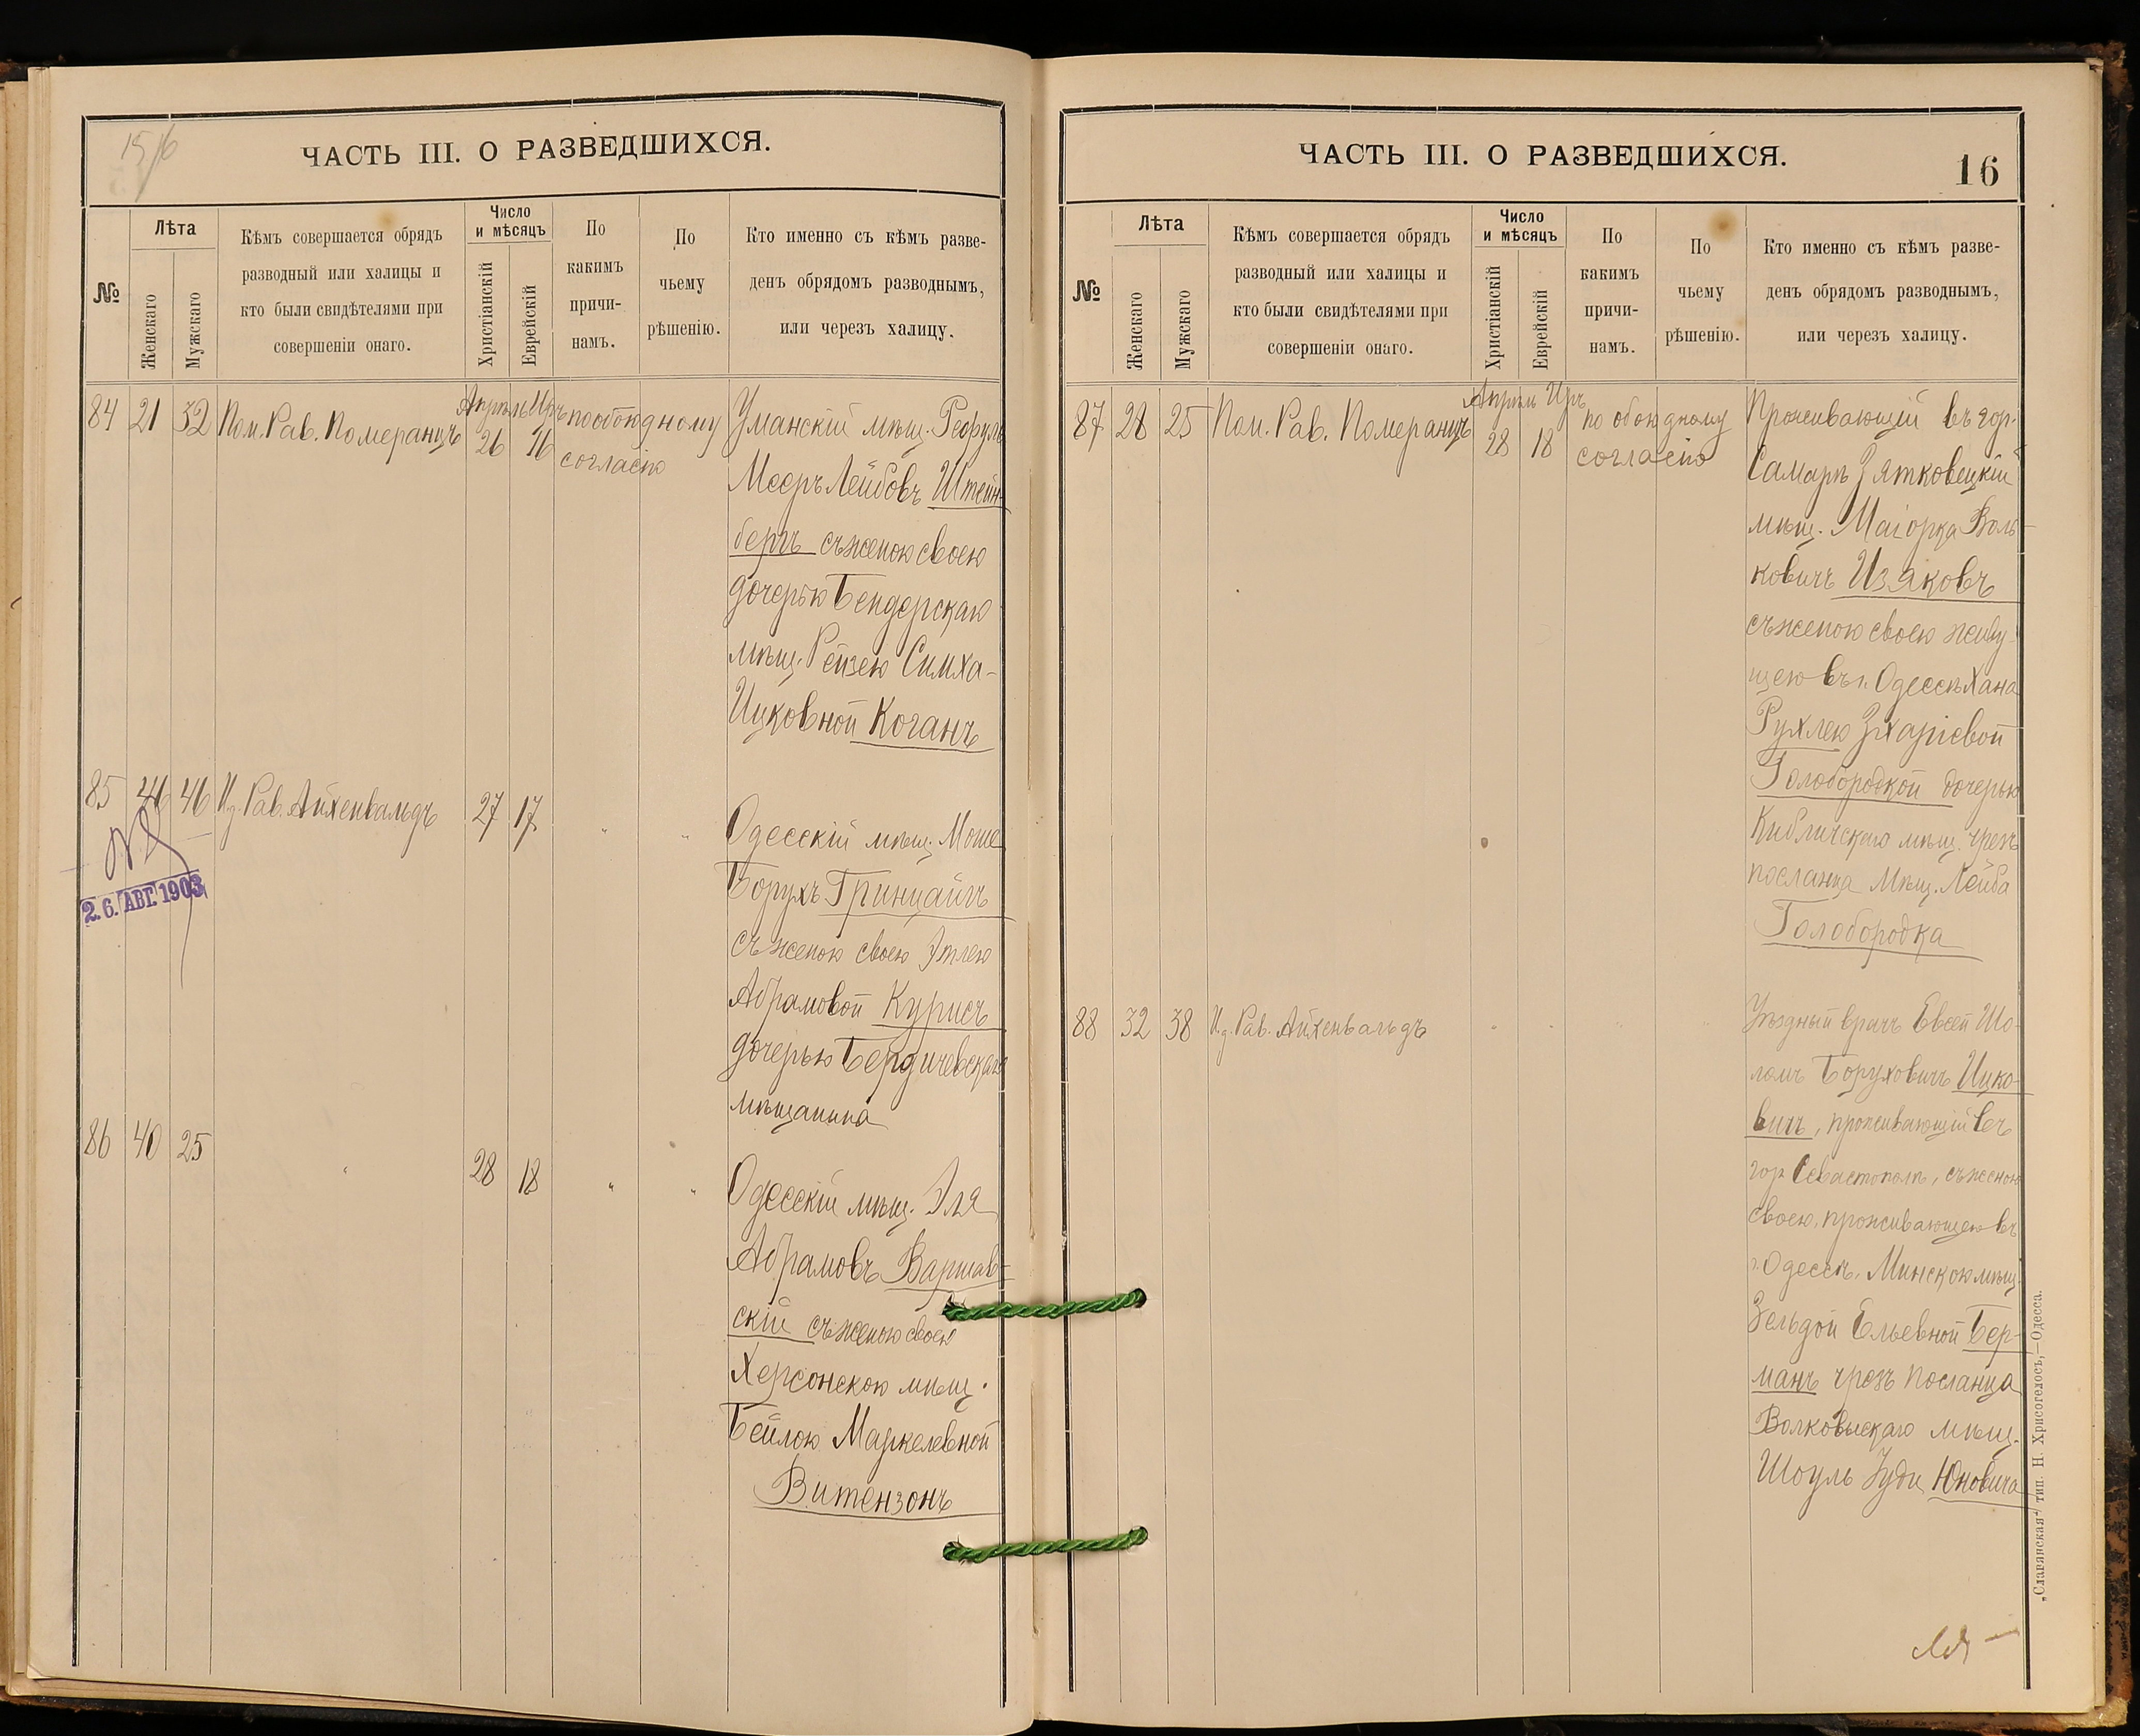 15/16
ЧАСТЬ III. О РАЗВЕДШИХСЯ.
№
Лѣта
Женскаго
Мужскаго
Кѣмъ совершается обрядъ
разводный или халицы и
кто были свидѣтелями при
совершеніи онаго.
Число
и мѣсяцъ
Христіанскій
Еврейскій
По
какимъ
причи-
намъ.
По
чьему
рѣшенію.
Кто именно съ кѣмъ разве-
денъ обрядомъ разводнымъ,
или черезъ халицу.
84 21 32 Пом. Рав. Померанцъ
Апрѣль Иръ
26 16
по обоюдному
согласію
Уманскій мѣщ. Рефулъ
Мееръ Лейбовъ Штейн-
бергъ съ женою своею
дочерью Бендерскаго
мѣщ. Рейзею Симха-
Ицковной Коганъ
85 46 46 И. д. Рав. Айхенвальдъ 27 17 " "
2.6. АВГ 1903
Одесскій мѣщ. Моше
Борухъ Гринцайгъ
съ женою своею Этлею
Абрамовой Курисъ
дочерью Бердичевскаго
мѣщанина
86 40 25 " 28 18 " "
Одесскій мѣщ. Эля
Абрамовъ Варшав-
скій съ женою своею
Херсонскою мѣщ.
Бейлою Маркелевной
Витензонъ
ЧАСТЬ III. О РАЗВЕДШИХСЯ.
16
№
Лѣта
Женскаго
Мужскаго
Кѣмъ совершается обрядъ
разводный или халицы и
кто были свидѣтелями при
совершеніи онаго.
Число
и мѣсяцъ
Христіанскій
Еврейскій
По
какимъ
причи-
намъ.
По
чьему
рѣшенію.
Кто именно съ кѣмъ разве-
денъ обрядомъ разводнымъ,
или черезъ халицу.
87 28 25 Пом. Рав. Померанцъ
Апрѣль Иръ
28 18
по обоюдному
согласію
Проживающій въ гор.
Самарѣ Зятковецкій
мѣщ. Маіорка Воль-
ковичъ Изяковъ
съ женою своею живу-
щею въ г. Одессѣ Хана
Рухлею Зхаріевой
Голобородкой дочерью
Кибличскаго мѣщ. чрезъ
посланца мѣщ. Лейба
Голобородка
88 32 38 И. д. Рав. Айхенвальдъ " " "
Уѣздный врачъ Евсей Шо-
ломъ Боруховичъ Ицко-
вичъ, проживающій въ
гор. Севастополѣ, съ женою
своею, проживающею въ
г. Одессѣ, Минскою мѣщ.
Зельдой Ельевной Бер-
манъ чрезъ посланца
Волковыскаго мѣщ.
Шоуль Іуди Юновича
„Славянская“ тип. Н. Хрисогелосъ,—Одесса.